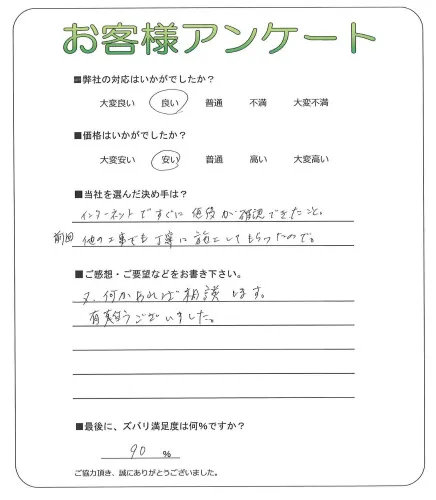 お客様アンケート
■弊社の対応はいかがでしたか?
大変良い 良い 普通 不満 大変不満
■価格はいかがでしたか?
大変安い 安い 普通 高い 大変高い
■当社を選んだ決め手は?
インターネットですぐに価格が確認できたこと。
前回 他の工事でも丁寧に施工してもらったので。
■ご感想・ご要望などをお書き下さい。
又、何かあれば相談します。
有難うございました。
■最後に、ズバリ満足度は何%ですか?
90 %
ご協力頂き、誠にありがとうございました。